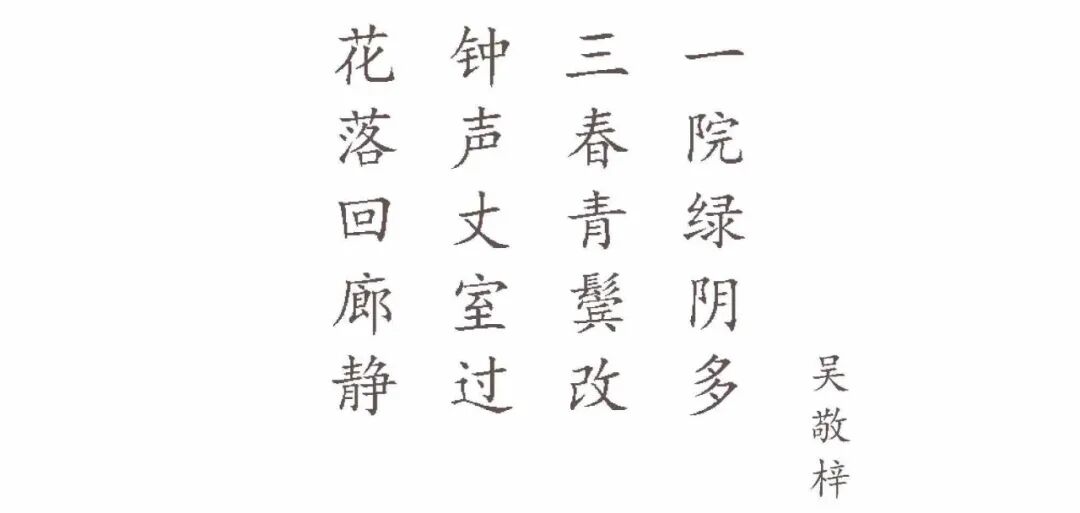 花落回廊静
钟声丈室过
三春青鬓改
一院绿阴多
吴敬梓